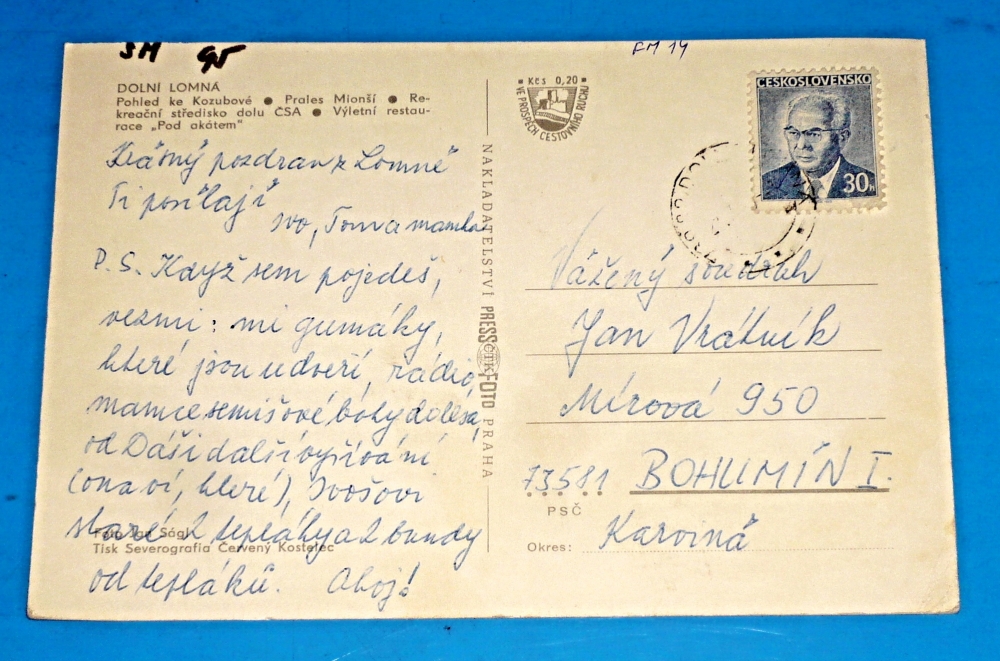 SM 95
FM 14
DOLNÍ LOMNÁ
Pohled ke Kozubové ● Prales Mionší ● Re-
kreační středisko dolu ČSA ● Výletní restau-
race „Pod akátem"
Krásný pozdrav z Lomné
Ti posílají
Ivo, Tom a mamka
P.S. Když sem pojedeš,
vezmi: mé gumáky,
které jsou u dveří, rádio,
mamce semišové boty do lesa,
od Dáši další vyšívání
(ona ví, které), Ivošovi
staré 2 tepláky a 2 bundy
od tepláků. Ahoj!
Foto Jan Ságl
Tisk Severografia Červený Kostelec
NAKLADATELSTVÍ PRESSFOTO PRAHA
ČTK
Kčs 0,20
VE PROSPĚCH CESTOVNÍHO RUCHU
ČESKOSLOVENSKO
30h
Vážený soudruh
Jan Vrátník
Mírová 950
73581 BOHUMÍN I.
PSČ
Okres: Karviná